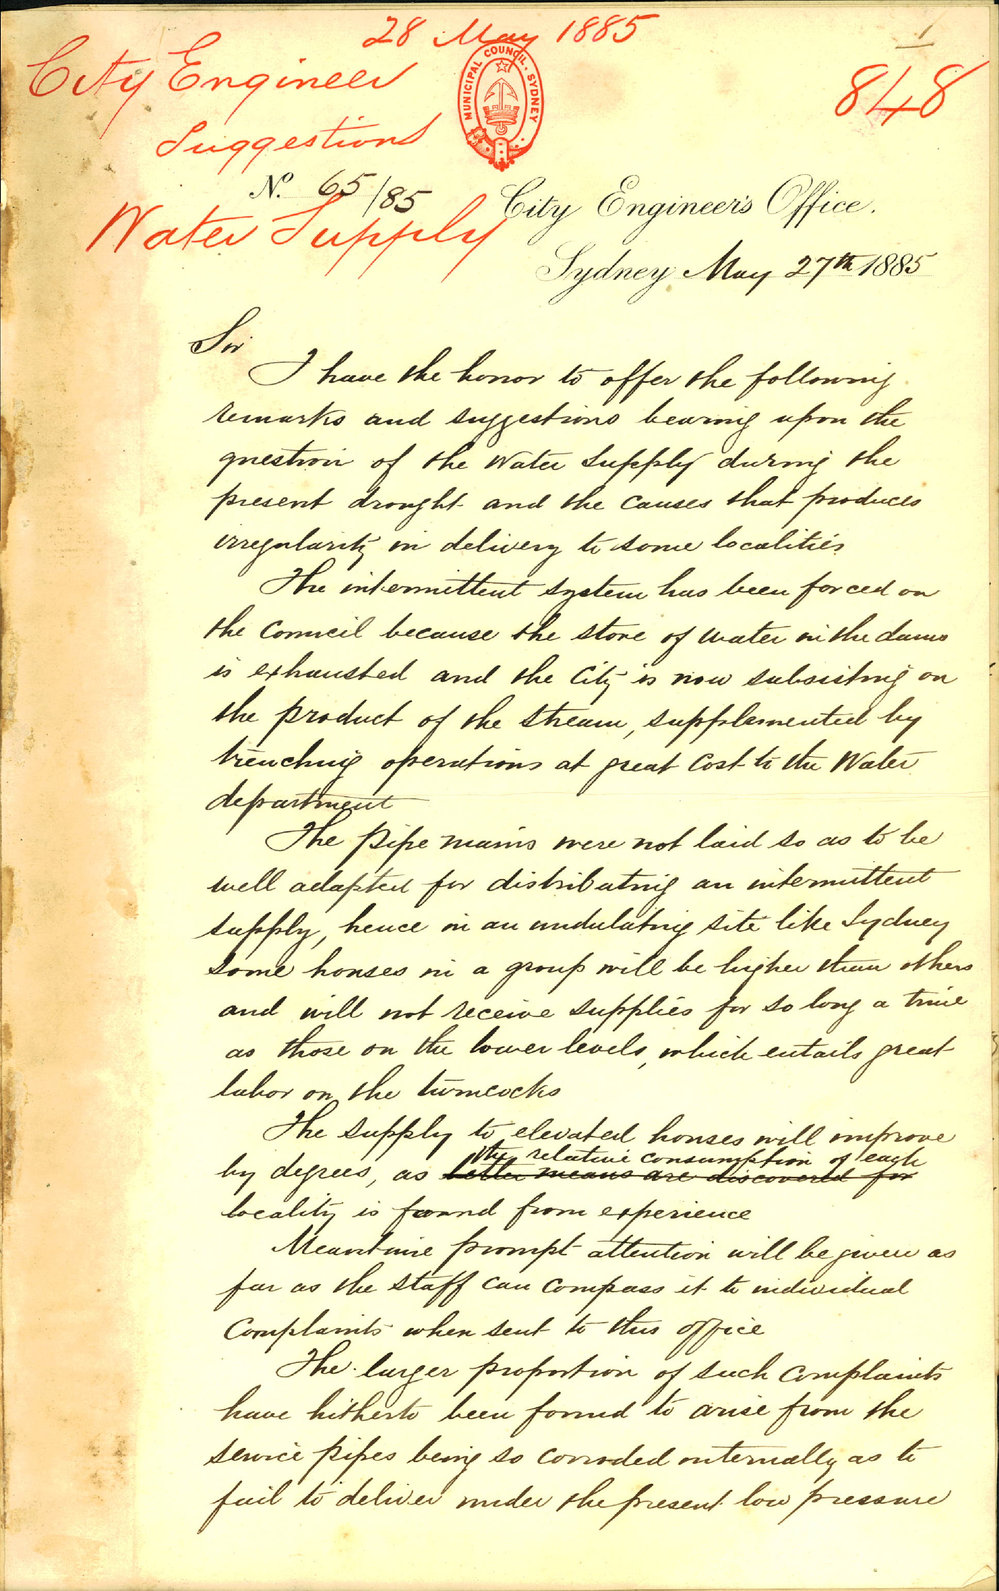 28 May 1885
1
City Engineer
848
Suggestions
MUNICIPAL COUNCIL. SYDNEY
No. 65/85
Water Supply
City Engineer's Office.
Sydney May 27th 1885
Sir
I have the honor to offer the following
remarks and suggestions bearing upon the
question of the Water Supply during the
present drought and the causes that produces
irregularity in delivery to some localities
The intermittent system has been forced on
the Council because the store of water in the dams
is exhausted and the City is now subsisting on
the product of the stream, supplemented by
trenching operations at great cost to the Water
department
The pipe mains were not laid so as to be
well adapted for distributing an intermittent
supply, hence in an undulating site like Sydney
some houses in a group will be higher than others
and will not receive supplies for so long a time
as those on the lower levels, which entails great
labor on the turncocks
The supply to elevated houses will improve
the relative consumption of each
by degrees, as better means are discovered for
locality is found from experience
Meantime prompt attention will be given as
far as the staff can compass it to individual
Complaints when sent to this office
The larger proportion of such Complaints
have hitherto been found to arise from the
service pipes being so corroded internally as to
fail to deliver under the present low pressure